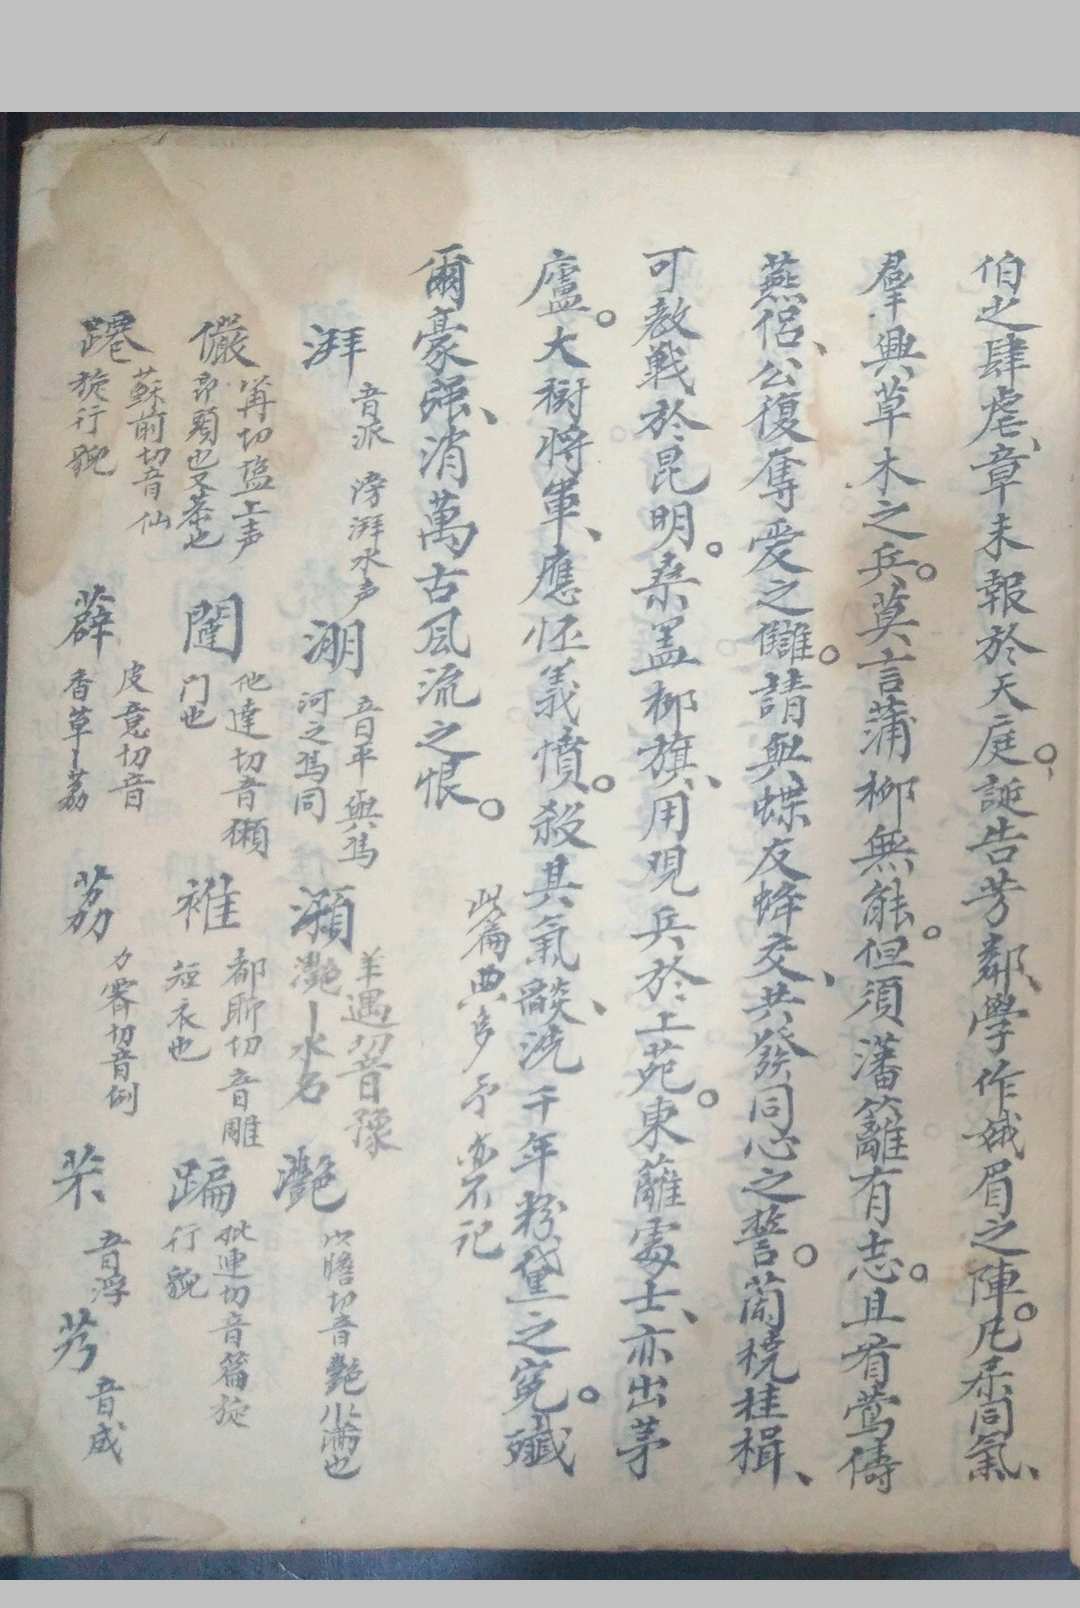 伯之肆虐、章未報於天庭。誕告芳鄰、學作娥眉之陣。凡属同氣、
羣興草木之兵。莫言蒲柳無能。但須藩籬有志。且看鶯儔
燕侣、公復奪愛之讎。請與蝶友蜂交、共發同心之誓。蘭橈桂楫、
可教戰於昆明。桑盖柳旗、用观兵於上苑。東籬處士、亦出茅
廬。大樹將軍、應怀義憤。殺其氣燄、洗千年粉黛之寃。殲
爾豪强、消萬古風流之恨。
此篇典多 予亦不記
湃 音派 滂湃水声 淜 音平 與馮河之馮同 灏 羊遇切音豫 灔丨水名 灔 以贍切音艷水满也
儼 昂頭也又恭也 闥 他達切音獺 门也 褋 都聊切音雕 短衣也 蹁 毗連切音篇旋行貌
躚 蘇前切音仙 旋行貌 薜 皮意切音 香草丨荔 荔 力霽切音例 芣 音浮 芳 音